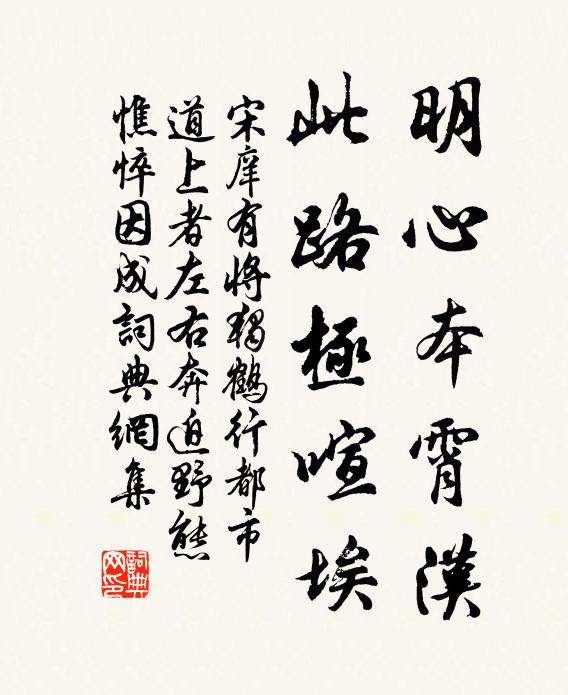 明心本霄漢
此路極喧埃
宋庠有將獨鶴行都市
道上者左右奔迫野態
憔悴因成詞典網集
詞典网印